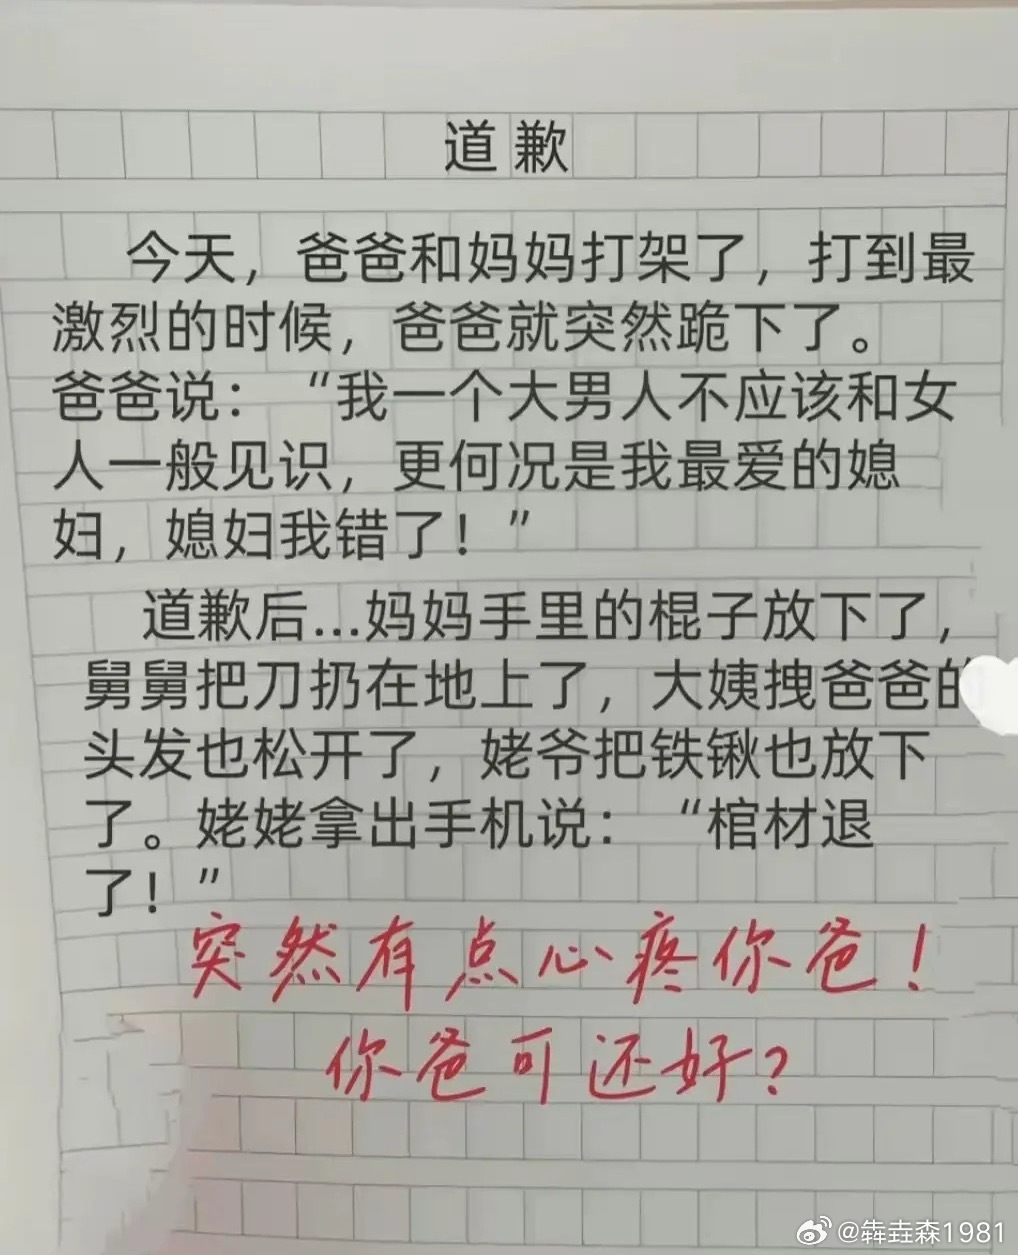 道歉
今天，爸爸和妈妈打架了，打到最
激烈的时候，爸爸就突然跪下了。
爸爸说：“我一个大男人不应该和女
人一般见识，更何况是我最爱的媳
妇，媳妇我错了！”
道歉后...妈妈手里的棍子放下了，
舅舅把刀扔在地上了，大姨拽爸爸的
头发也松开了，姥爷把铁锹也放下
了。姥姥拿出手机说：“棺材退
了！”
突然有点心疼你爸！
你爸可还好？
@犇垚森1981